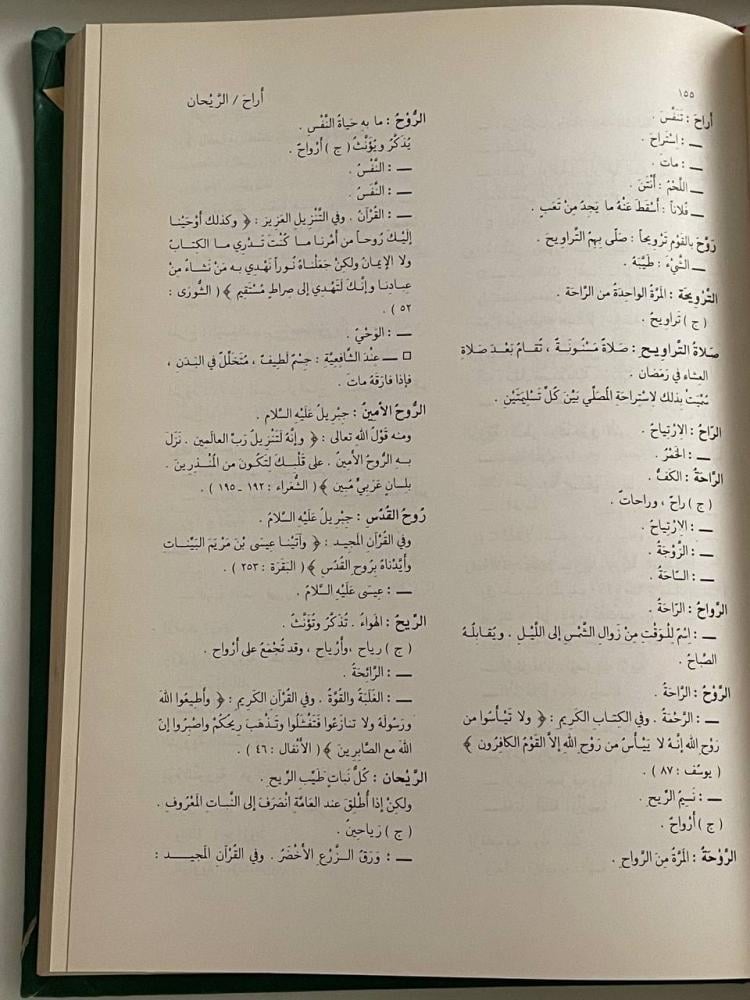 ١٥٥
أراحَ / الرَّيْحان
أراحَ : تَنَفَّسَ .
ــ : اسْتراحَ .
ــ : ماتَ .
ــ اللَّحْمُ : أَنْتَنَ .
ــ فُلاناً : أَسْقَطَ عَنْهُ ما يَجِدُ مِنْ تَعَبٍ .
رَوَّحَ بالقَوْمِ تَرْويحاً : صَلَّى بِهِمُ التَّراويحَ .
ــ الشَّيْءَ : طَيَّبَهُ .
التَّرْويحَة : المَرَّةُ الواحِدَةُ من الرَّاحَةِ .
( ج ) تَراويحُ .
صَلاةُ التَّراويحِ : صَلاةٌ مَسْنُونَةٌ ، تُقامُ بَعْدَ صَلاةِ
العِشاءِ في رَمَضان .
سُمِّيَتْ بذلك لاسْتِراحَةِ المُصَلِّي بَيْنَ كُلِّ تَسْلِيمَتَيْنِ .
الرّاحُ : الارْتِياحُ .
ــ : الخَمْرُ .
الرّاحَةُ : الكَفُّ .
( ج ) راحٌ ، وراحاتٌ .
ــ : الارْتِياحُ .
ــ : الزَّوْجَةُ .
ــ : السَّاحَةُ .
الرَّواحُ : الرّاحَةُ .
ــ : إسْمٌ لِلْوَقْتِ مِنْ زَوالِ الشَّمْسِ إلى اللَّيْلِ . ويُقابِلُهُ
الصَّباحُ .
الرَّوْحُ : الرَّاحَةُ .
ــ : الرَّحْمَةُ . وفي الكِتابِ الكَريمِ : ﴿ ولا تَيْأَسُوا من
رَوْحِ اللهِ إنَّهُ لا يَيْأَسُ مِنْ رَوْحِ اللهِ إلاَّ القَوْمُ الكافِرُون ﴾
( يوسُف : ٨٧ ) .
ــ : نَسِيمُ الرِّيحِ .
( ج ) أرْواحٌ .
الرَّوْحَةُ : المَرَّةُ مِنَ الرَّواحِ .
الرُّوْحُ : ما بِهِ حَياةُ النَّفْسِ .
يُذَكَّرُ ويُؤَنَّثُ ( ج ) أرْواحٌ .
ــ : النَّفْسُ .
ــ : النَّفَسُ .
ــ : القُرْآنُ . وفي التَّنْزيلِ العَزيزِ : ﴿ وكذلك أوْحَيْنا
إلَيْكَ رُوحاً من أمْرِنا ما كُنْتَ تَدْري ما الكِتابُ
ولا الإيمانُ ولكِنْ جَعَلْناهُ نُوراً نَهْدي به مَنْ نَشاءُ مِنْ
عِبادِنا وإنَّكَ لَتَهْدي إلى صِراطٍ مُسْتَقِيمٍ ﴾ ( الشُّورَى :
٥٢ ) .
ــ : الوَحْيُ .
□ ــ عِنْدَ الشَّافِعيَّةِ : جِسْمٌ لَطيفٌ ، مُتَخَلِّلٌ في البَدَنِ ،
فإذا فارَقَهُ ماتَ .
الرُّوحُ الأمينُ : جِبْريلُ عَلَيْهِ السَّلامُ .
ومنه قَوْلُ اللهِ تعالى : ﴿ وإنَّهُ لَتَنْزيلُ رَبِّ العالَمين . نَزَلَ
بِهِ الرُّوحُ الأمينُ . على قَلْبِكَ لِتَكُونَ من المُنْذِرينَ .
بِلِسانٍ عَرَبيٍّ مُبين ﴾ ( الشُّعَراء : ١٩٢ ـ ١٩٥ ) .
رُوحُ القُدُسِ : جِبْريلُ عَلَيْهِ السَّلامُ .
وفي القُرْآنِ المَجيد : ﴿ وآتَيْنا عِيسَى بْنَ مَرْيَمَ البَيِّناتِ
وأيَّدْناهُ بِرُوحِ القُدُسِ ﴾ ( البَقَرَة : ٢٥٣ ) .
ــ : عيسَى عَلَيْهِ السَّلامُ .
الرِّيحُ : الهَواءُ . تُذَكَّرُ وتُؤَنَّثُ .
( ج ) رياح ، وأرْياح ، وقد تُجْمَعُ على أرْواحٍ .
ــ : الرَّائِحَةُ .
ــ : الغَلَبَةُ والقُوَّةُ . وفي القُرْآنِ الكَريمِ : ﴿ وأطيعُوا اللهَ
ورَسُولَهُ ولا تنازَعُوا فَتَفْشَلُوا وتَذْهَبَ ريحُكُمْ واصْبِرُوا إنَّ
اللهَ مع الصَّابِرينَ ﴾ ( الأنْفال : ٤٦ ) .
الرَّيْحان : كُلُّ نَباتٍ طَيِّبِ الرِّيحِ .
ولكِنْ إذا أُطْلِقَ عند العامَّةِ انْصَرَفَ إلى النَّباتِ المَعْروفِ .
( ج ) رَياحينُ .
ــ : وَرَقُ الزَّرْعِ الأخْضَرُ . وفي القُرْآنِ المَجيد :